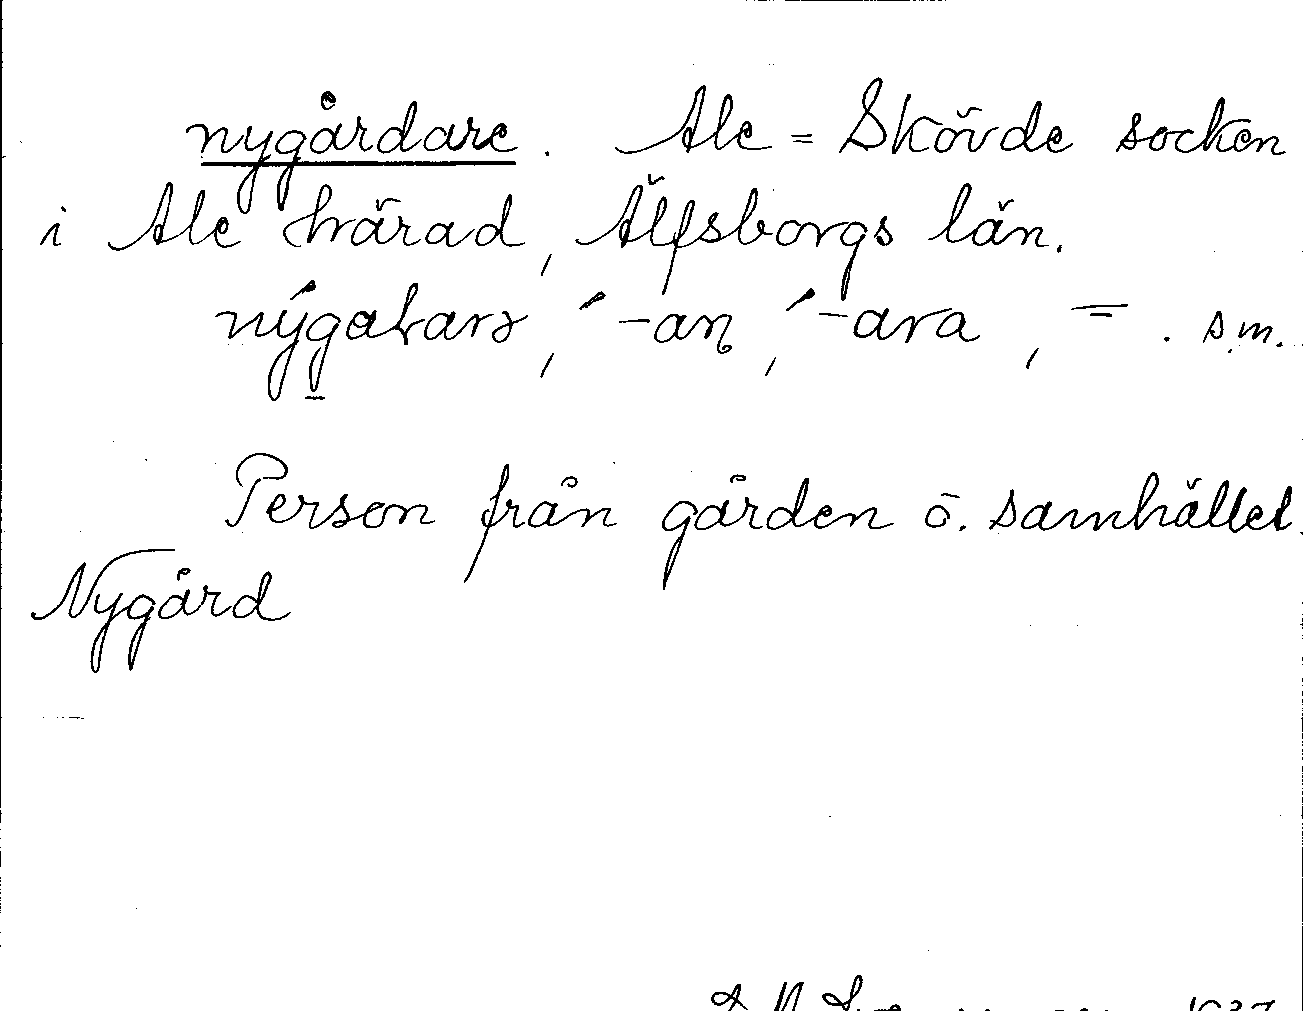 nygårdare. Ale = Skövde socken
i Ale härad, Älfsborgs län.
-an, -ara, = . s.m.
Person från gården o. samhället
Nygård